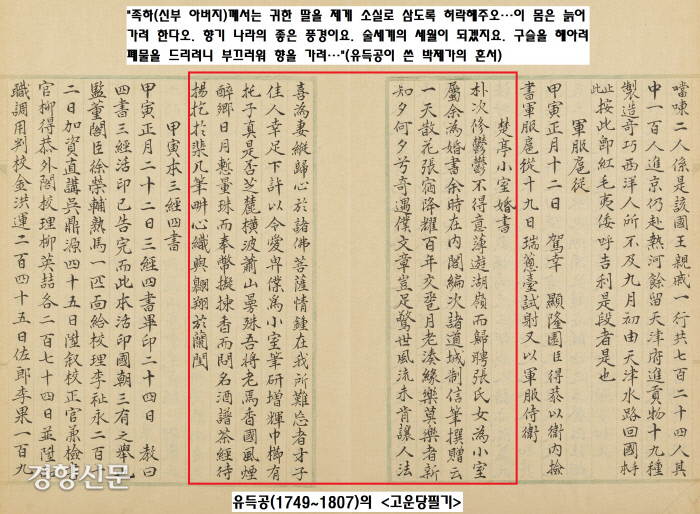 "족하(신부 아버지)께서는 귀한 딸을 제게 소실로 삼도록 허락해주오…이 몸은 늙어
가려 한다오. 향기 나라의 좋은 풍경이요. 술세계의 세월이 되겠지요. 구슬을 헤아려
폐물을 드리려니 부끄러워 향을 가려…"(유득공이 쓴 박제가의 혼서)
噹唻二人係是該國王親戚一行共七百二十四人其
中一百人進京仍赴熱河餘留天津府進貢物十九種
製造奇巧西洋人所不及九月初由天津水路回國
止按此卽紅毛夷倭呼吉利是段者是也
軍服扈從
甲寅正月十二日 駕幸 顯隆園臣得恭以衛內檢
書軍服扈從十九日 瑞葱臺試射又以軍服侍衛
楚亭小室婚書
朴次修鬱鬱不得意薄遊湖嶺而歸聘張氏女為小室
屬余為婚書余時在內閣編次諸道城制信筆撰贈云
一天散花張宿降耀百年亥月老湊緣樂莫樂者新
知夕何夕兮奇遇僕文章豈足驚世風流未肯讓人法
喜為妻縱歸心於諸佛菩薩情鍾在我所難忘者才子
佳人幸足下許以令愛卑僕為小室筆研增輝巾櫛有
托子真是否芝麓橫波蕭山曼殊吾將老焉香國風煙
醉鄉日月慙量珠而奉幣擬揀香而問名酒譜茶經待
揚扢於棐几筆畊心織與翺翔於蘭閨
甲寅本三經四書
甲寅正月二十二日三經四書畢印二十四日 教曰
四書三經活印已告完而此本活印國朝三有之舉
監董閣臣徐榮輔熟馬一匹面給校理李祉永二百
二日加資直講吳鼎源四十五日陞叙校正官兼檢
官柳得恭外閣校理柳英喆各二百七十四日並陞
職調用判校金洪運二百四十五日佐郎李果一百九
경향신문
유득공(1749~1807)의 <고운당필기>